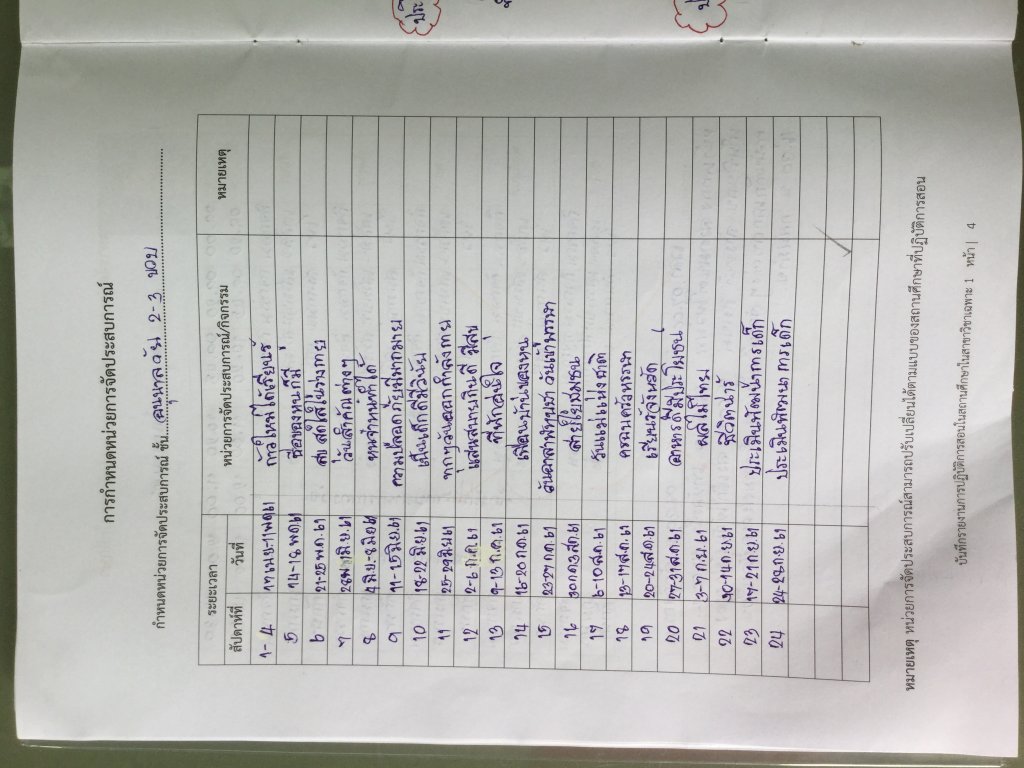 การกำหนดหน่วยการจัดประสบการณ์
กำหนดหน่วยการจัดประสบการณ์ ชั้น....อนุบาลวัย 2-3 ขวบ....
ระยะเวลา หน่วยการจัดประสบการณ์/กิจกรรม หมายเหตุ
สัปดาห์ที่ วันที่
1-4 17 เม.ย-11พ.ค61 ก้าวใหม่ได้เรียนรู้
5 14-18 พ.ค61 ชื่อของหนูก็มี
6 21-25 พ.ค.61 สดใสในร่างกาย
7 มิ.ย.61 วันสำคัญต่างๆ
8 4 มิ.ย.-8 มิ.ย61 หนูจ๋าหนูทำได้
9 11-15 มิ.ย.61 ความปลอดภัยมีมากมาย
10 18-22 มิ.ย.61 เป็นเด็กดีมีวินัย
11 25-29 มิ.ย61 ทุกๆวันออกกำลังกาย
12 2-6 ก.ค.61 แสนสบายกินดี มีสุข
13 9-13 ก.ค.61 ที่พักสุขใจ
14 16-20 ก.ค.61 เพื่อนบ้านของหนู
15 23-27 ก.ค.61 วันอาสาฬหบูชา วันเข้าพรรษา
16 30ก.ค.3ส.ค.61 สายใยชุมชน
17 6-10 ส.ค.61 วันแม่แห่งชาติ
18 13-17 ส.ค.61 ครอบครัวหรรษา
19 20-24 ส.ค.61 เรียนรู้จังหวัด
20 27-31 ส.ค.61 อาหารดีมีประโยชน์
21 3-7 ก.ย.61 ผลไม้ไทย
22 10-14 ก.ย.61 ชีวิตน่ารู้
23 17-21 ก.ย.61 ประเมินพัฒนาการเด็ก
24 24-28 ก.ย.61 ประเมินพัฒนาการเด็ก
หมายเหตุ หน่วยการจัดประสบการณ์สามารถปรับเปลี่ยนได้ตามแบบของสถานศึกษาที่ปฏิบัติการสอน
บันทึกรายงานการปฏิบัติการสอนในสถานศึกษาในสาขาวิชาเฉพาะ 1 หน้า | 4